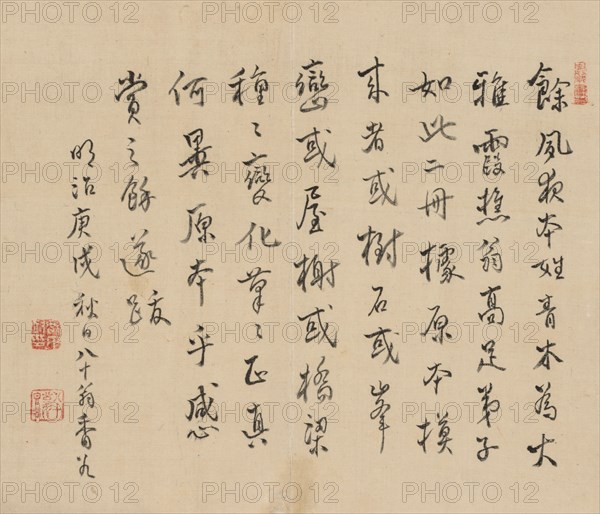 餘夙夜本姓青木為大
雅霞樵翁高足弟子
如此二冊據原本模
来者或樹石或峯
巒或屋榭或橋梁
種〻變化筆〻正真
何異原本乎感
賞之餘遂跋
明治庚戌秋日八十翁香谷
PHOTO12